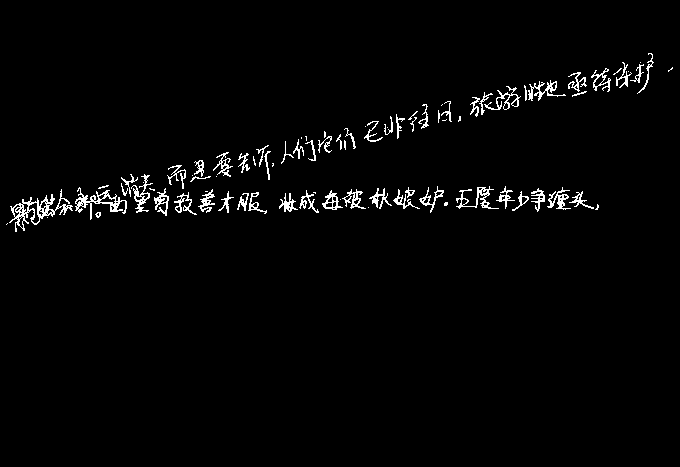 永远消失,而是要告诉人们它们已非往日,旅游胜地亟待保护.
部。曲罢曾教善才服,妆成每被秋娘妒.五陵年少争缠头,